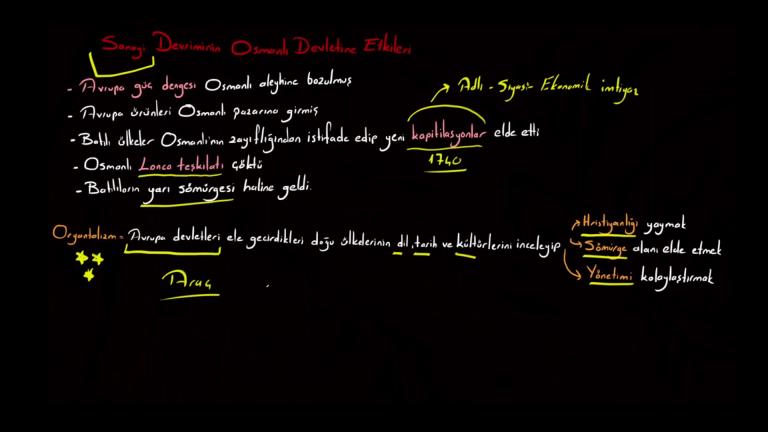 Sanayi Devriminin Osmanlı Devletine Etkileri
- Avrupa güç dengesi Osmanlı aleyhine bozulmuş
→ Adli - Siyasi - Ekonomik imtiyaz
- Avrupa ürünleri Osmanlı pazarına girmiş
- Batılı ülkeler Osmanlı'nın zayıflığından istifade edip yeni kapitilasyonlar elde etti
1740
- Osmanlı Lonca teşkilatı çöktü
- Batılıların yarı sömürgesi haline geldi.
Oryantalizm = Avrupa devletleri ele geçirdikleri doğu ülkelerinin dil, tarih ve kültürlerini inceleyip
→ Hristiyanlığı yaymak
→ Sömürge alanı elde etmek
→ Yönetimi kolaylaştırmak
Araç